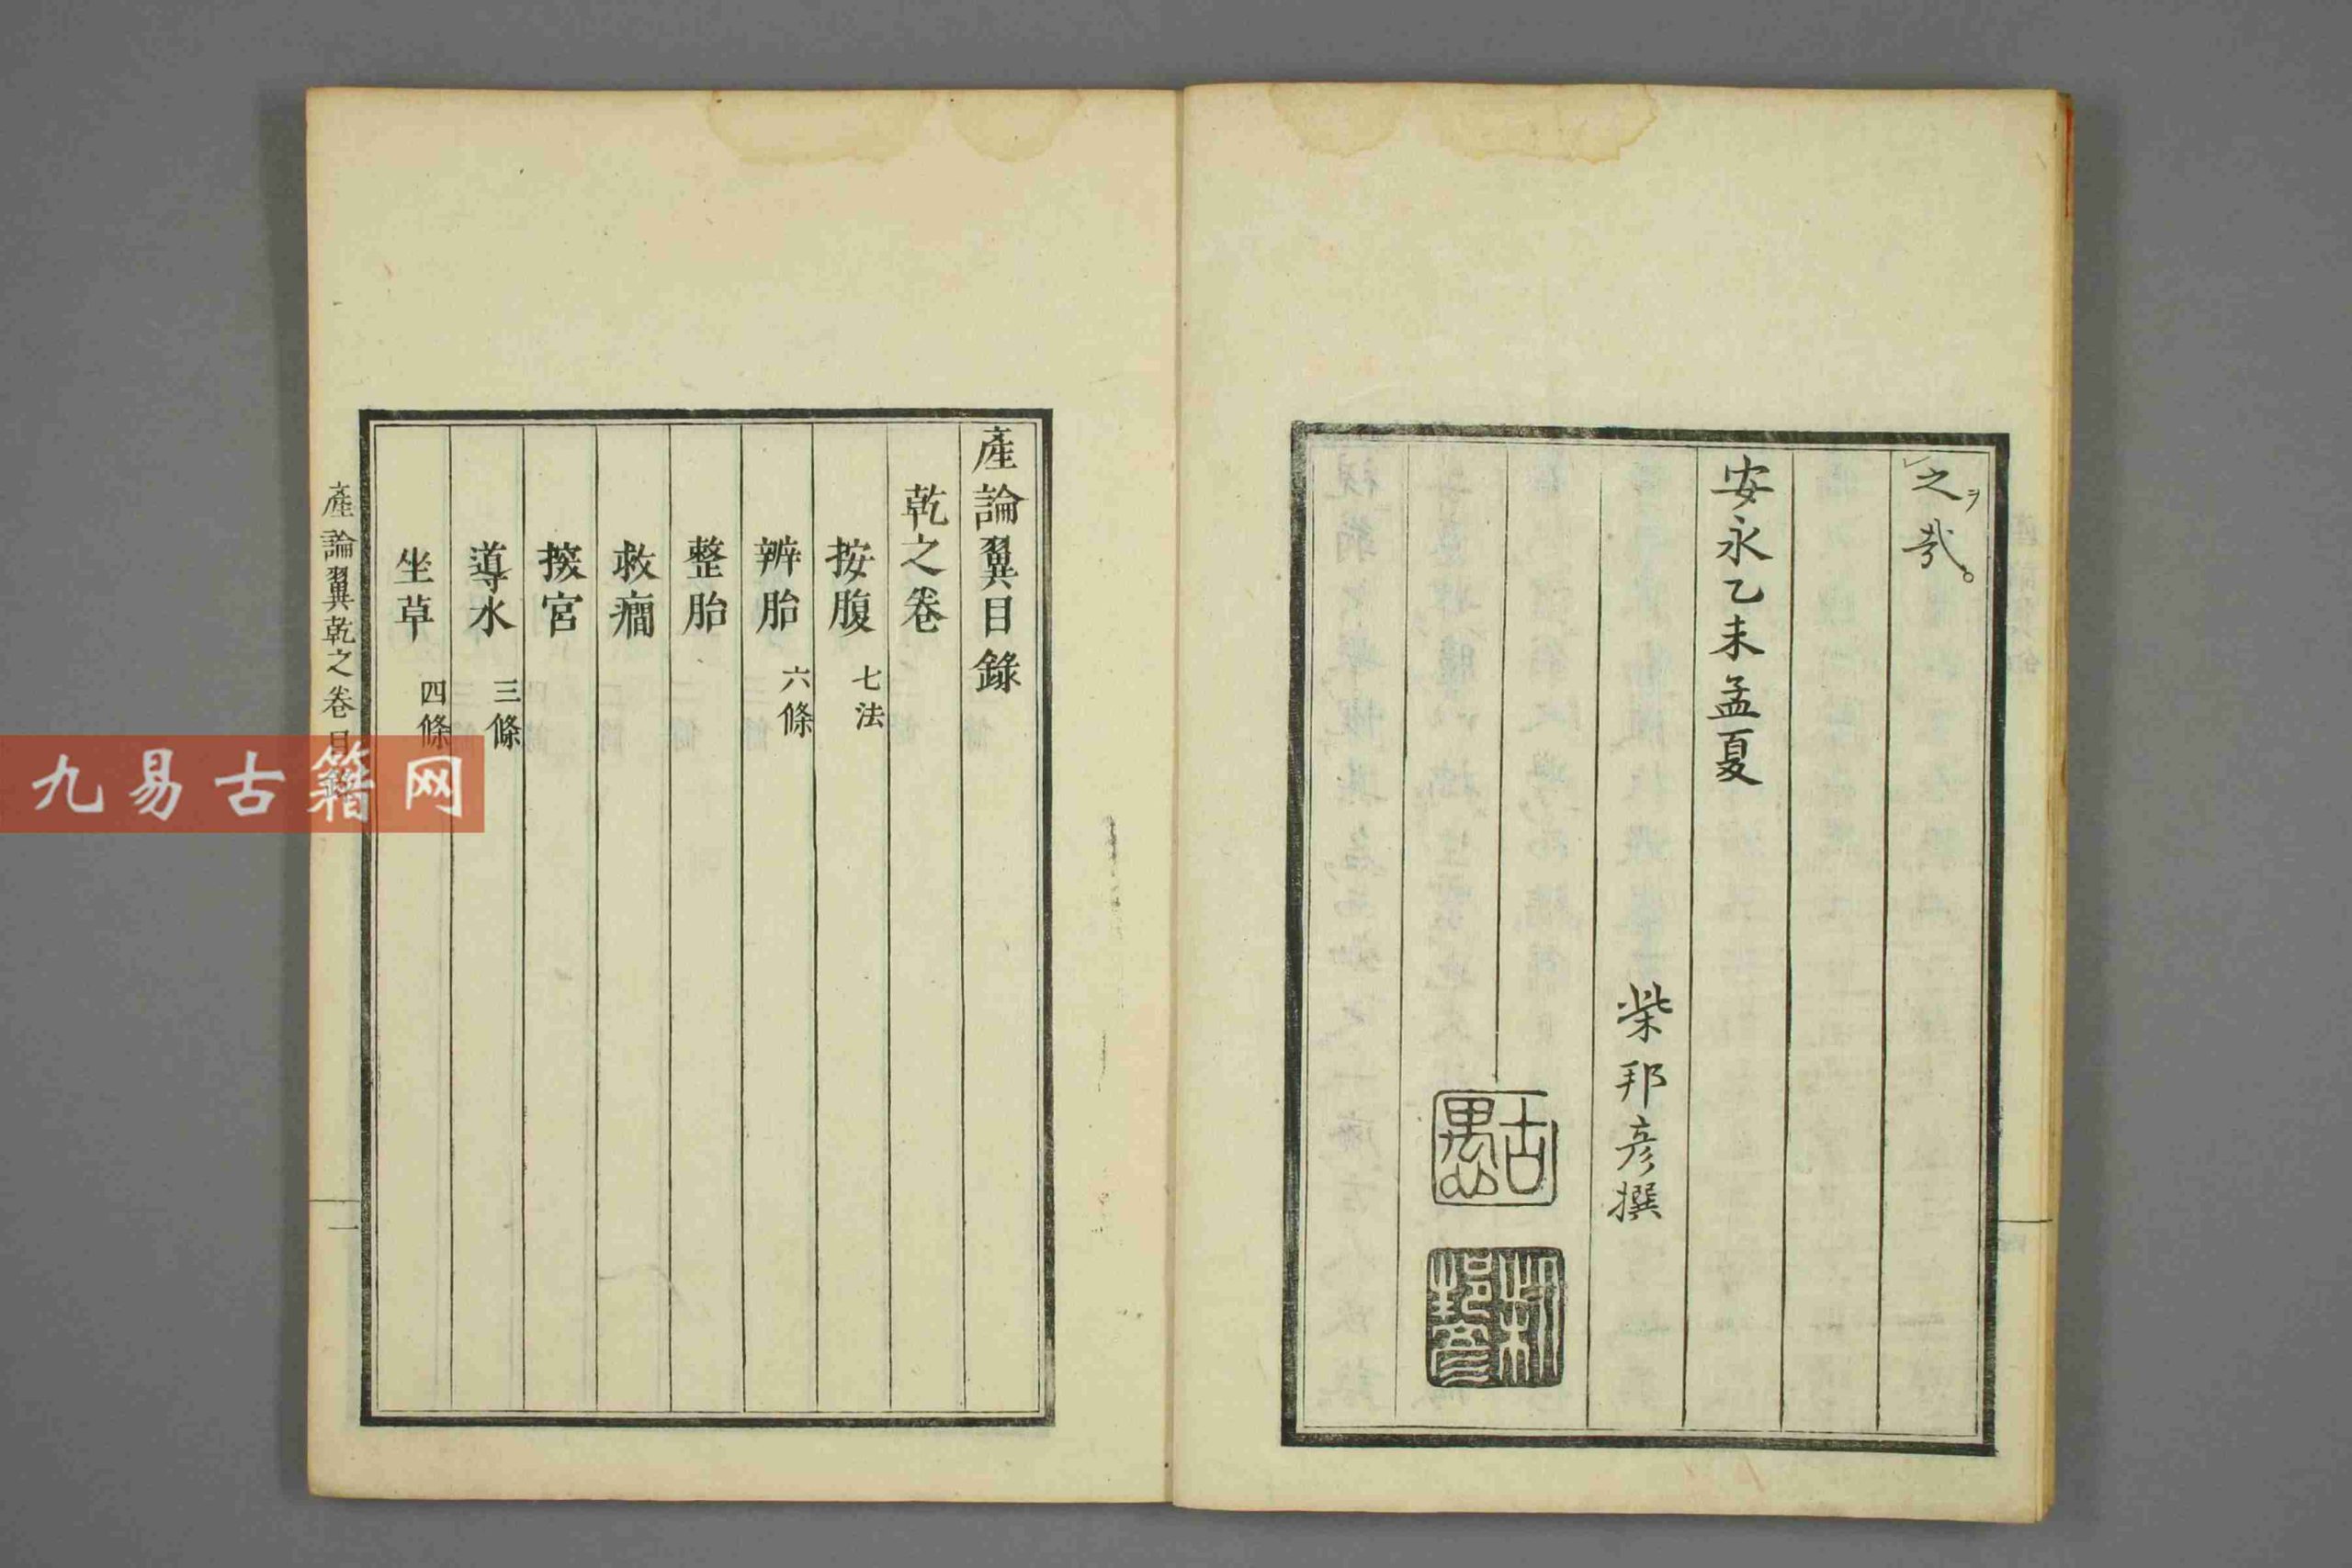 之ヲ哉。
安永乙未孟夏
柴邦彦撰
古愚
柴邦彦
產論翼目錄
乾之卷
按腹 七法
辨胎 六條
整胎
救癇
㨨宮
導水 三條
坐草 四條
產論翼乾之卷 目錄 一
九易古籍网